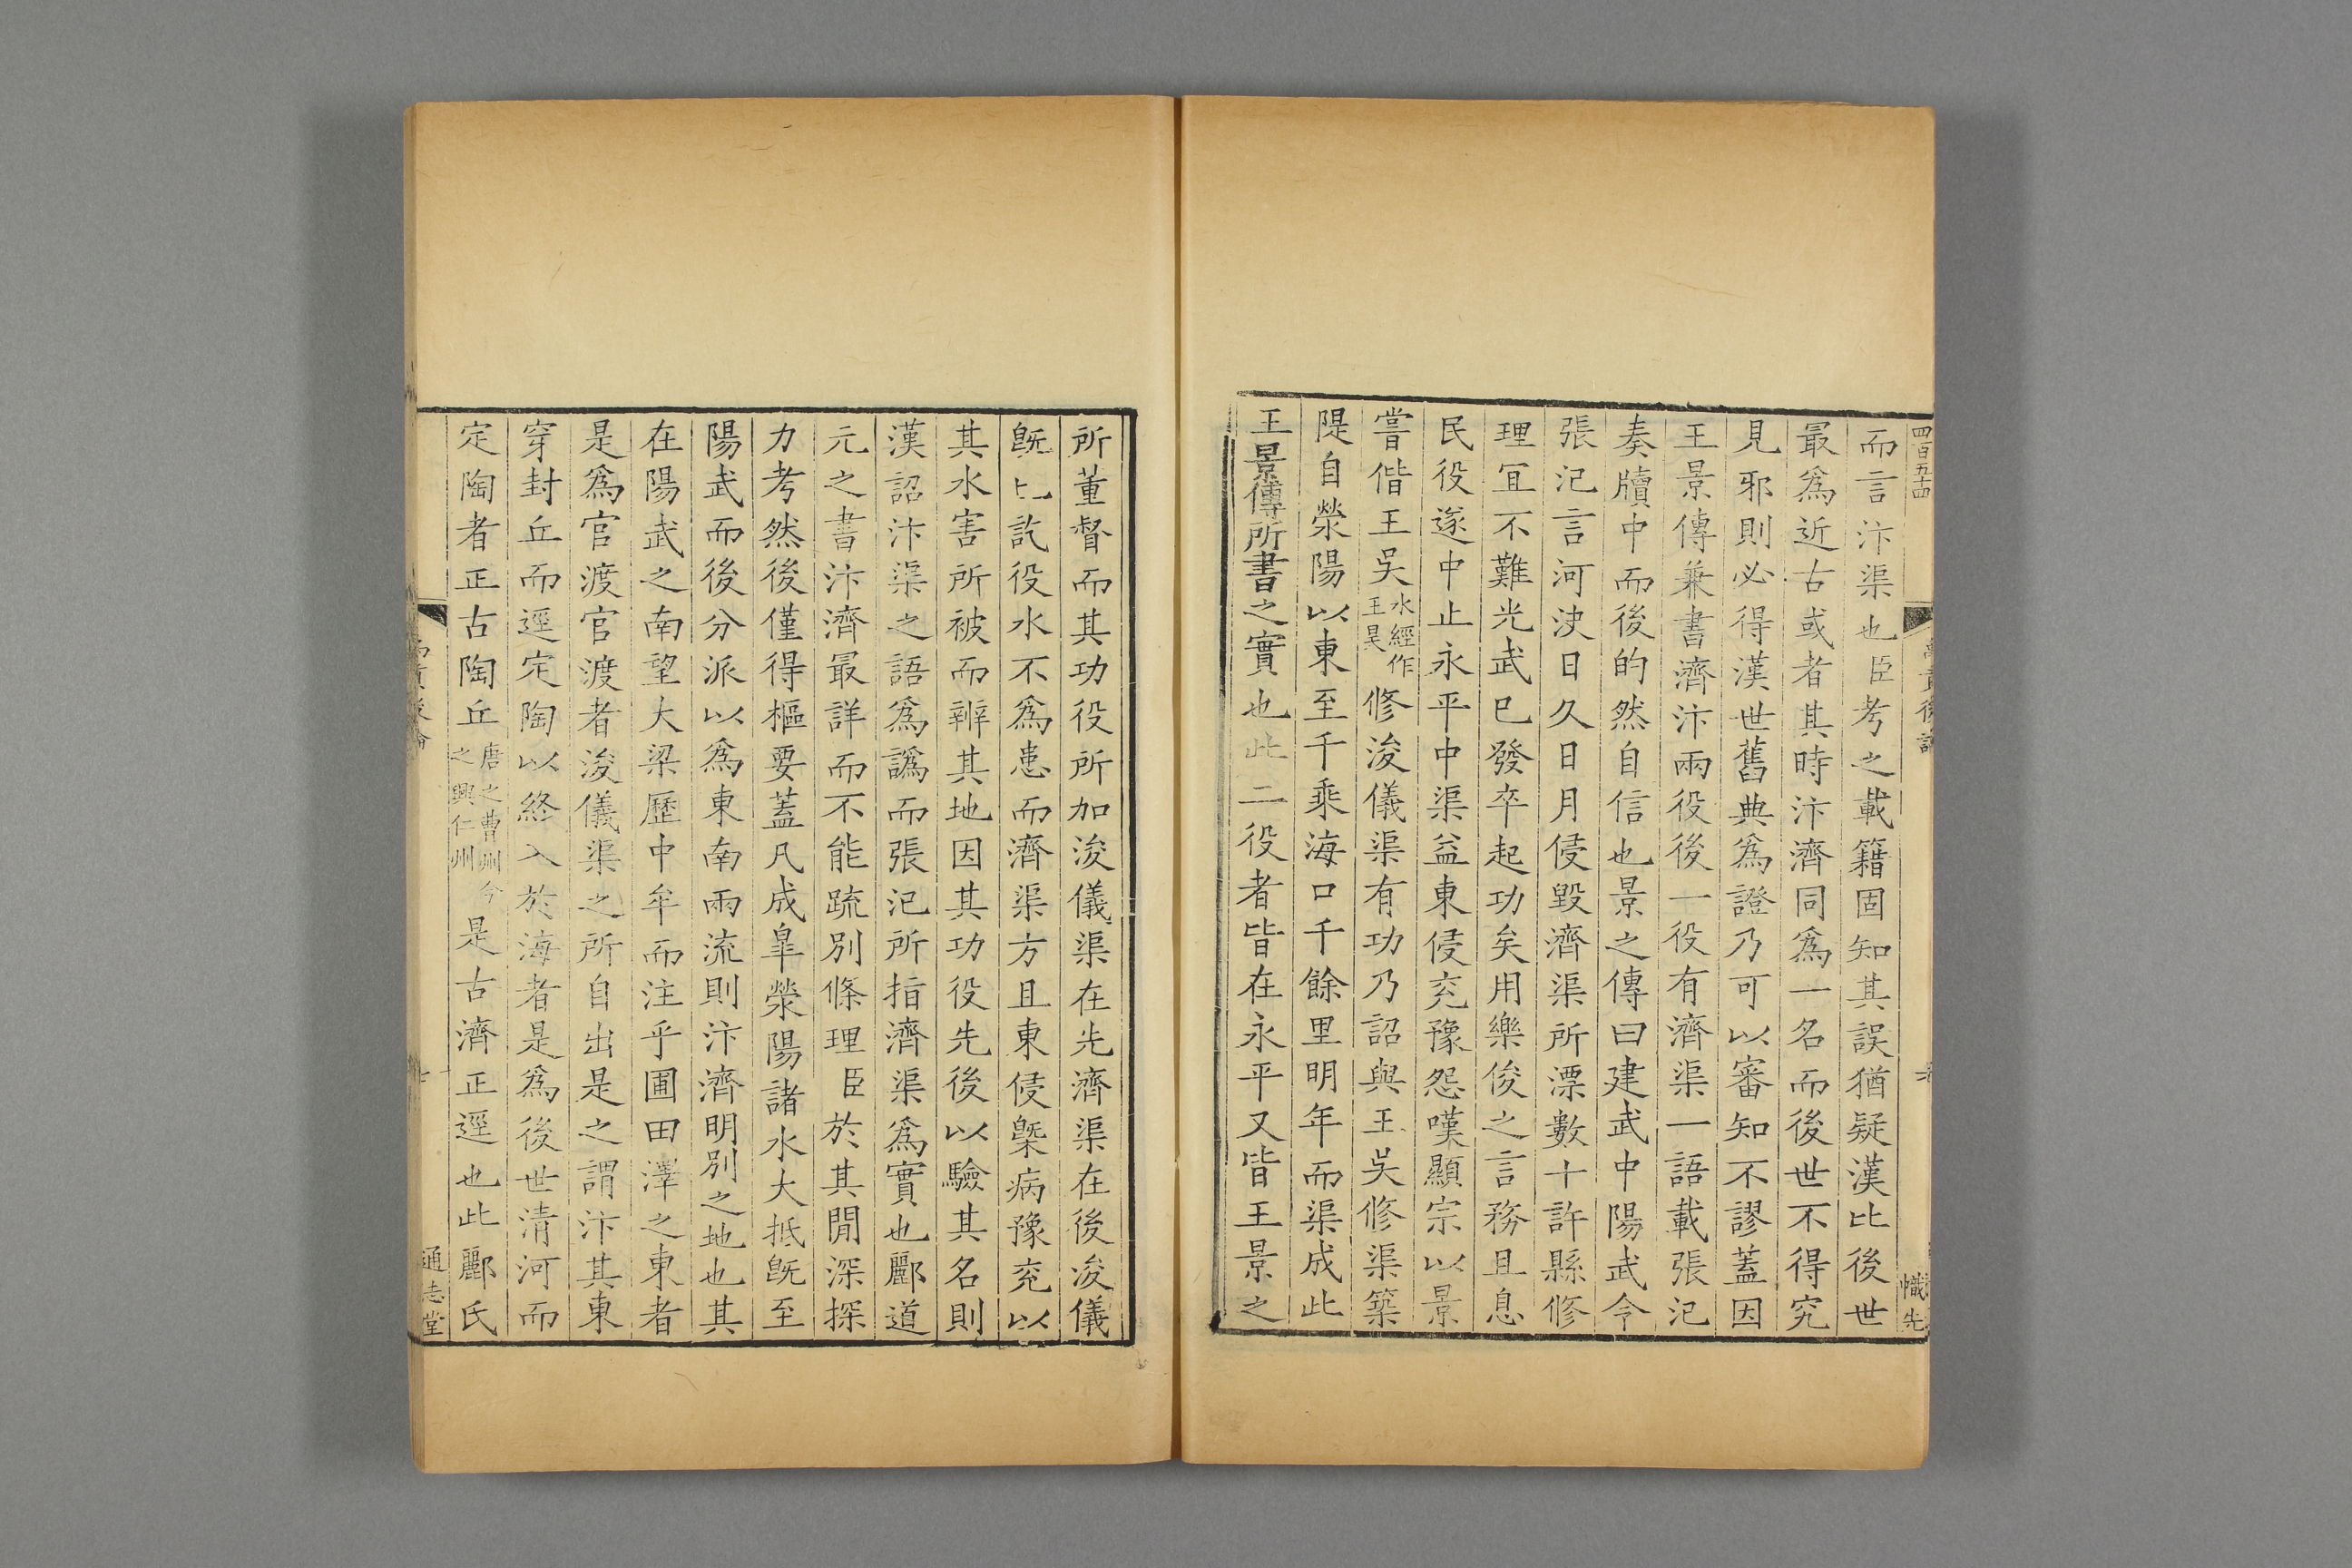 四百五十四
禹貢後論
幟先
而言汴渠也臣考之載籍固知其誤猶疑漢比後世
最爲近古或者其時汴濟同爲一名而後世不得究
見邪則必得漢世舊典爲證乃可以審知不謬蓋因
王景傳兼書濟汴兩役後一役有濟渠一語載張汜
奏牘中而後的然自信也景之傳曰建武中陽武令
張汜言河決日久日月侵毀濟渠所漂數十許縣修
理宜不難光武已發卒起功矣用樂俊之言務且息
民役遂中止永平中渠益東侵兖豫怨嘆顯宗以景
嘗偕王吳水經作王昊修浚儀渠有功乃詔與王吳修渠築
隄自滎陽以東至千乘海口千餘里明年而渠成此
王景傳所書之實也此二役者皆在永平又皆王景之
所董督而其功役所加浚儀渠在先濟渠在後浚儀
旣已訖役水不爲患而濟渠方且東侵槩病豫兖以
其水害所被而辨其地因其功役先後以驗其名則
漢詔汴渠之語爲譌而張汜所指濟渠爲實也酈道
元之書汴濟最詳而不能疏別條理臣於其閒深探
力考然後僅得樞要蓋凡成皐滎陽諸水大抵旣至
陽武而後分派以爲東南兩流則汴濟明別之地也其
在陽武之南望大梁歷中牟而注乎圃田澤之東者
是爲官渡官渡者浚儀渠之所自出是之謂汴其東
穿封丘而逕定陶以終入於海者是爲後世清河而
定陶者正古陶丘唐之曹州今之興仁州是古濟正逕也此酈氏
通志堂